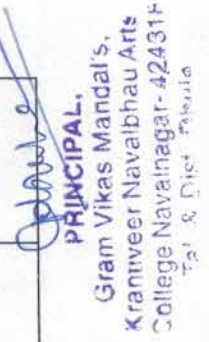 PRINCIPAL,
Gram Vikas Mandal's,
Krantiveer Navalbhau Arts
College Navalnagar- 424318
Tal & Dist Dhule